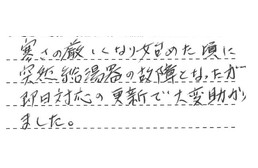 寒さの厳しくなり始めた頃に
突然給湯器の故障となったが
即日対応の更新で大変助かり
ました。